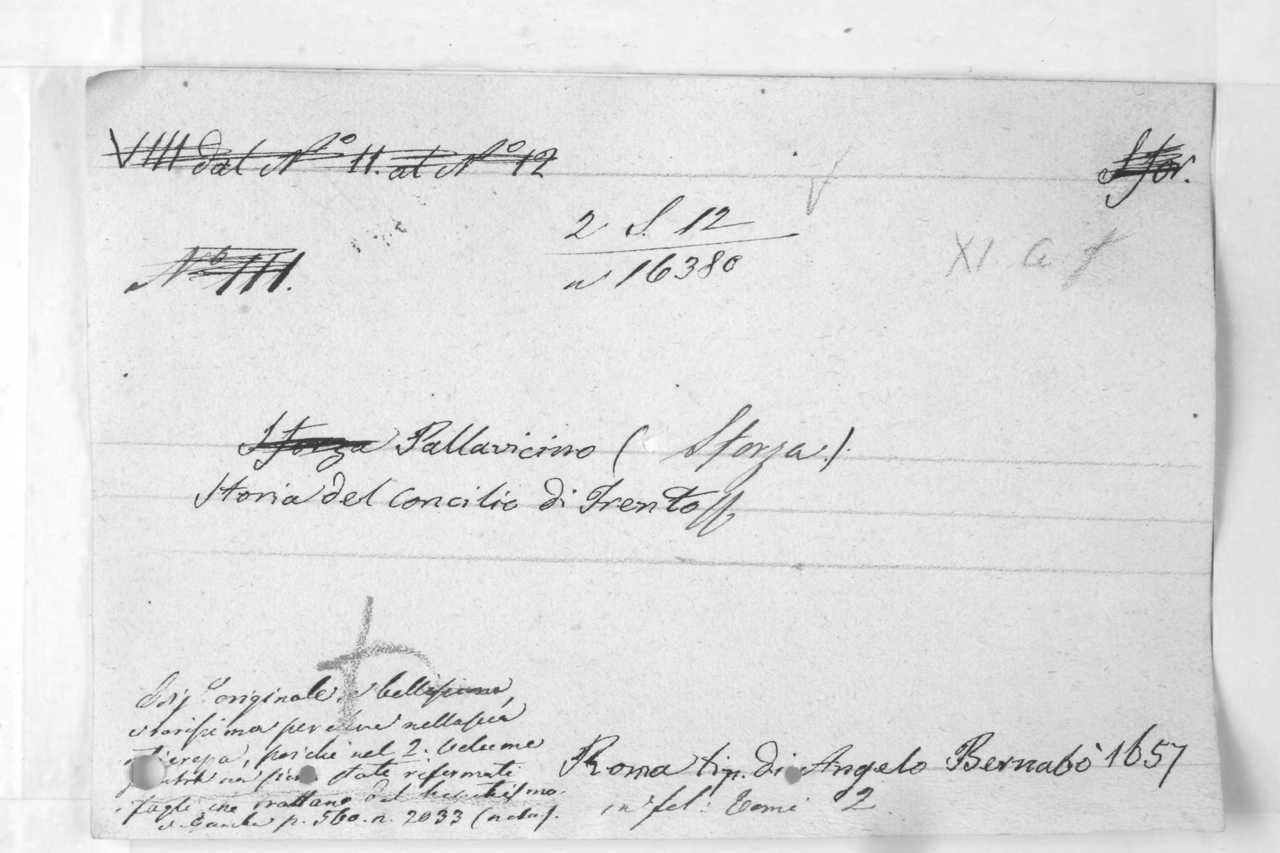 VIIII dal Nº 11. al Nº 12
Sfor.
Nº III.
2 S. 12
n 16380
XI. a f
Sforza Pallavicino ( Sforza.)
Storia del Concilio di Trento
originale, e bellissima,
rarissima per che nella sua
perche nel 2. Volume
state riformati
fogli che trattano del
v. Gamba p. 560. n. 2033 (nota).
Roma tip. di Angelo Bernabò 1657
in fol: Tomi 2